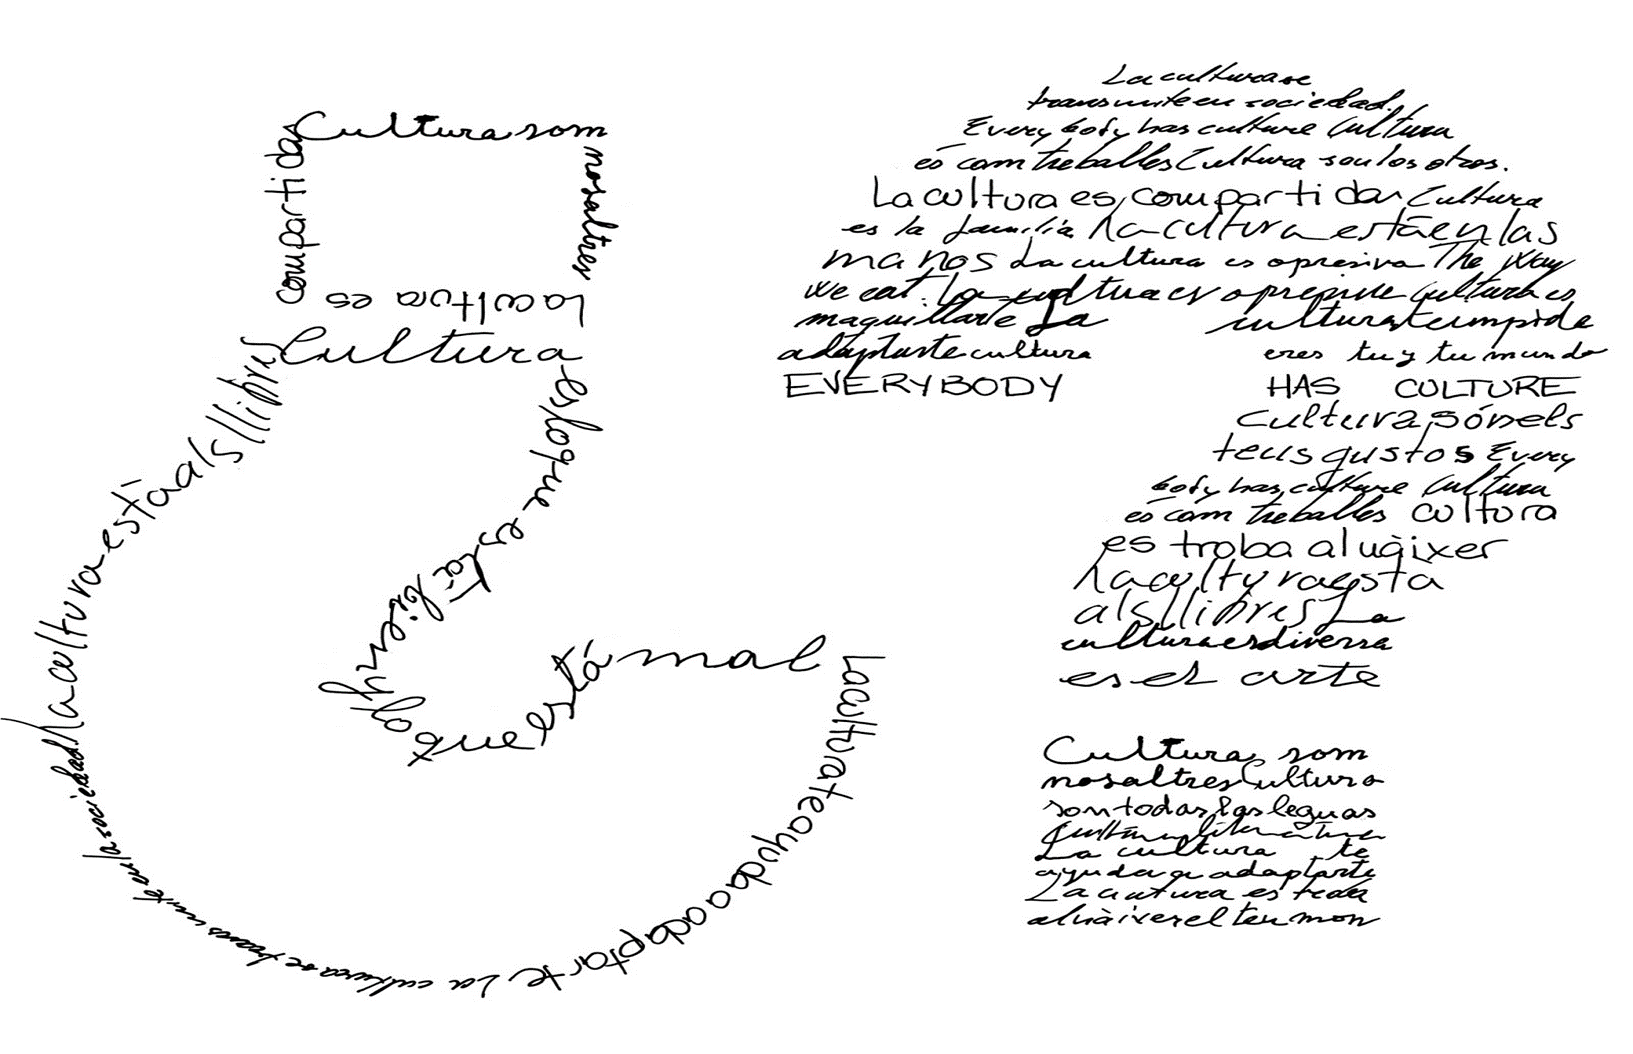 Cultura som
nosaltres
La cultura es
compartida
Cultura
es lo que es
tá bien y
lo que está mal
La cultura te ayuda a adaptarte
La cultura se transmite en la sociedad
La cultura està als llibres
La cultura se
transmite en sociedad.
Every body has culture Cultura
és com treballes Cultura son los otros.
La cultura es compartida Cultura
es la familia La cultura está en las
manos La cultura es opresiva The way
we eat. La cultura es opresive Cultura es
maquillarte La cultura te impide
adaptarte cultura eres tu y tu mundo
EVERYBODY HAS CULTURE
Cultura són els
teus gustos Every
body has culture Cultura
és com treballes cultura
es troba al uàixer
La cultura esta
als llibres La
cultura es diversa
es el arte
Cultura som
nosaltres Cultura
son todas las leguas
La cultura te
ayuda a adaptarte
La cultura es troba
al uàixer el teu mon